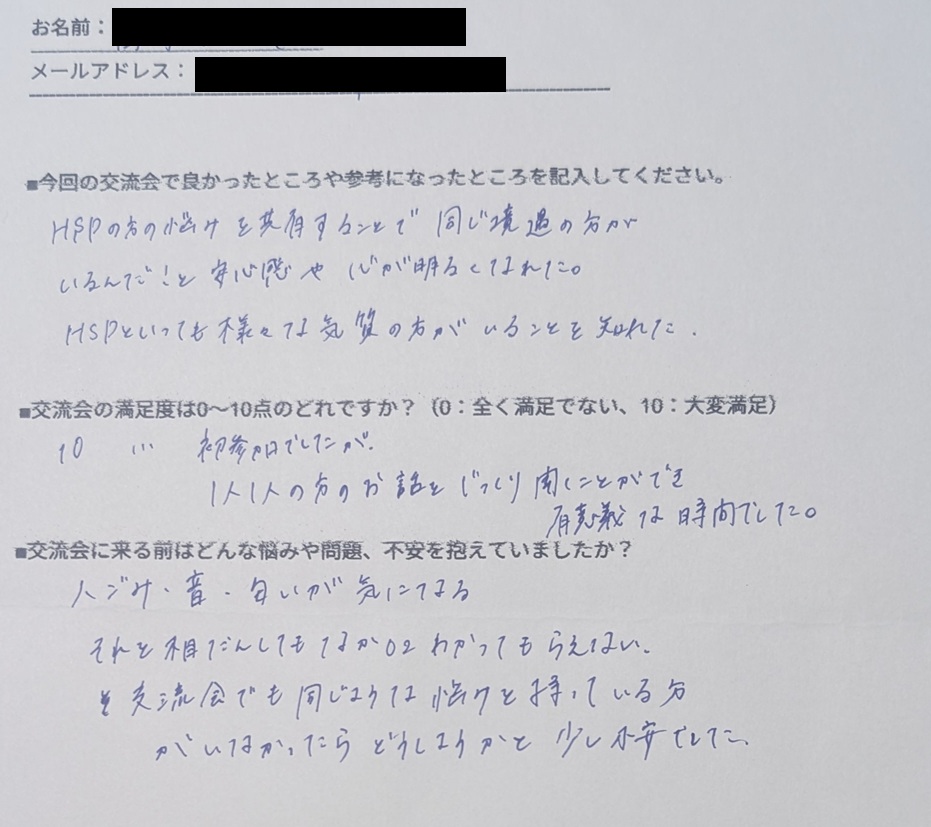 お名前：
メールアドレス：
■今回の交流会で良かったところや参考になったところを記入してください。
HSPの方の悩みを共有することで同じ境遇の方が
いるんだ！と安心感や心が明るくなれた。
HSPといっても様々な気質の方がいることを知れた.
■交流会の満足度は0〜10点のどれですか？（0：全く満足でない、10：大変満足）
10 … 初参加でしたが.
1人1人の方のお話をじっくり聞くことができ
有意義な時間でした。
■交流会に来る前はどんな悩みや問題、不安を抱えていましたか？
人ゴミ・音・匂いが気になる
それを相だんしてもなかなかわかってもらえない.
交流会でも同じような悩みを持っている方
がいなかったらどうしようかと少し不安でした.